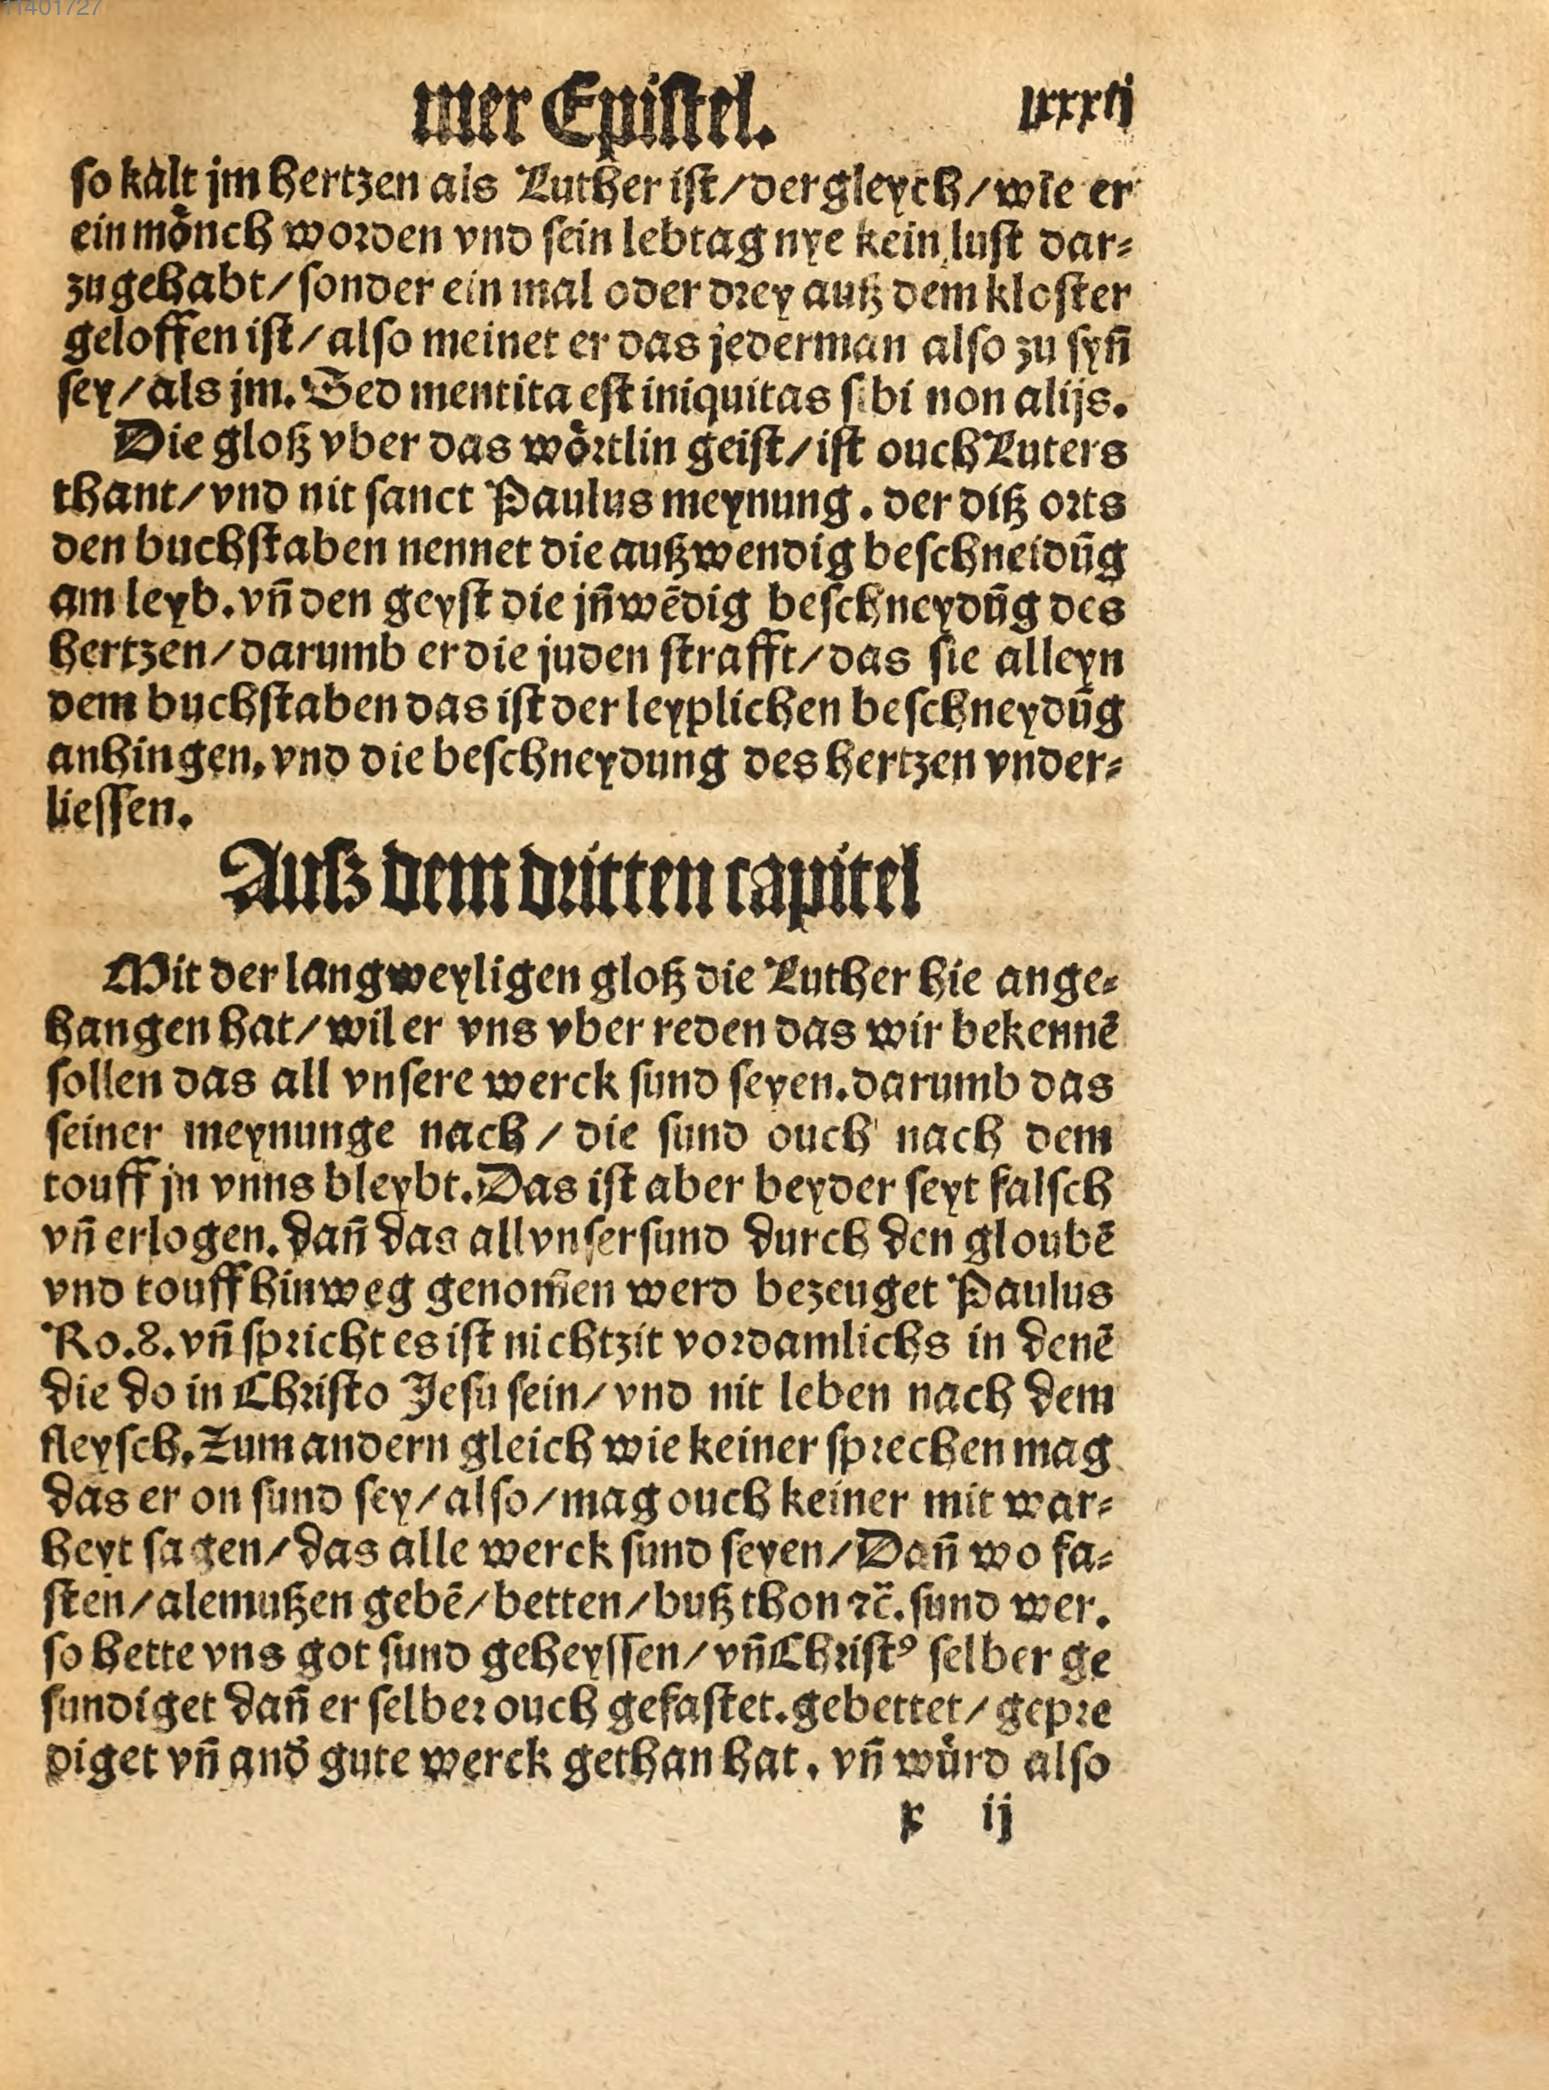 11401727
mer Epistel. lxxxij
so kalt jm hertzen als Luther ist/dergleych/wie er
ein mönch worden vnd sein lebtag nye kein lust dar⸗
zu gehabt/sonder ein mal oder drey auß dem kloster
geloffen ist/also meinet er das jederman also zu syn̄
sey/als jm. Sed mentita est iniquitas sibi non alijs.
Die gloß vber das wörtlin geist/ist ouch Luters
thant/vnd nit sanct Paulus meynung. der diß orts
den buchstaben nennet die außwendig beschneidūg
am leyb. vn̄ den geyst die jn̄wēdig beschneydūg des
hertzen/darumb er die juden strafft/das sie alleyn
dem buchstaben das ist der leyplichen beschneydūg
anhingen, vnd die beschneydung des hertzen vnder⸗
liessen.
Ausz dem dritten capitel
Mit der langweyligen gloß die Luther hie ange⸗
hangen hat/wil er vns vber reden das wir bekennē
sollen das all vnsere werck sund seyen. darumb das
seiner meynunge nach/die sund ouch nach dem
touff jn vnns bleybt. Das ist aber beyder seyt falsch
vn̄ erlogen. dan̄ das all vnser sund durch den gloubē
vnd touff hinweg genom̄en werd bezeuget Paulus
Ro.8. vn̄ spricht es ist nichtzit vordamlichs in denē
die do in Christo Jesu sein/vnd nit leben nach dem
fleysch. Zum andern gleich wie keiner sprechen mag
das er on sund sey/also/mag ouch keiner mit war⸗
heyt sagen/das alle werck sund seyen/Dan̄ wo fa⸗
sten/alemußen gebē/betten/buß thon ⁊c̄. sund wer.
so hette vns got sund geheyssen/vn̄ Christꝰ selber ge
sundiget dan̄ er selber ouch gefastet. gebettet/gepre
diget vn̄ and̕ gute werck gethan hat. vn̄ wu̍rd also
x ij